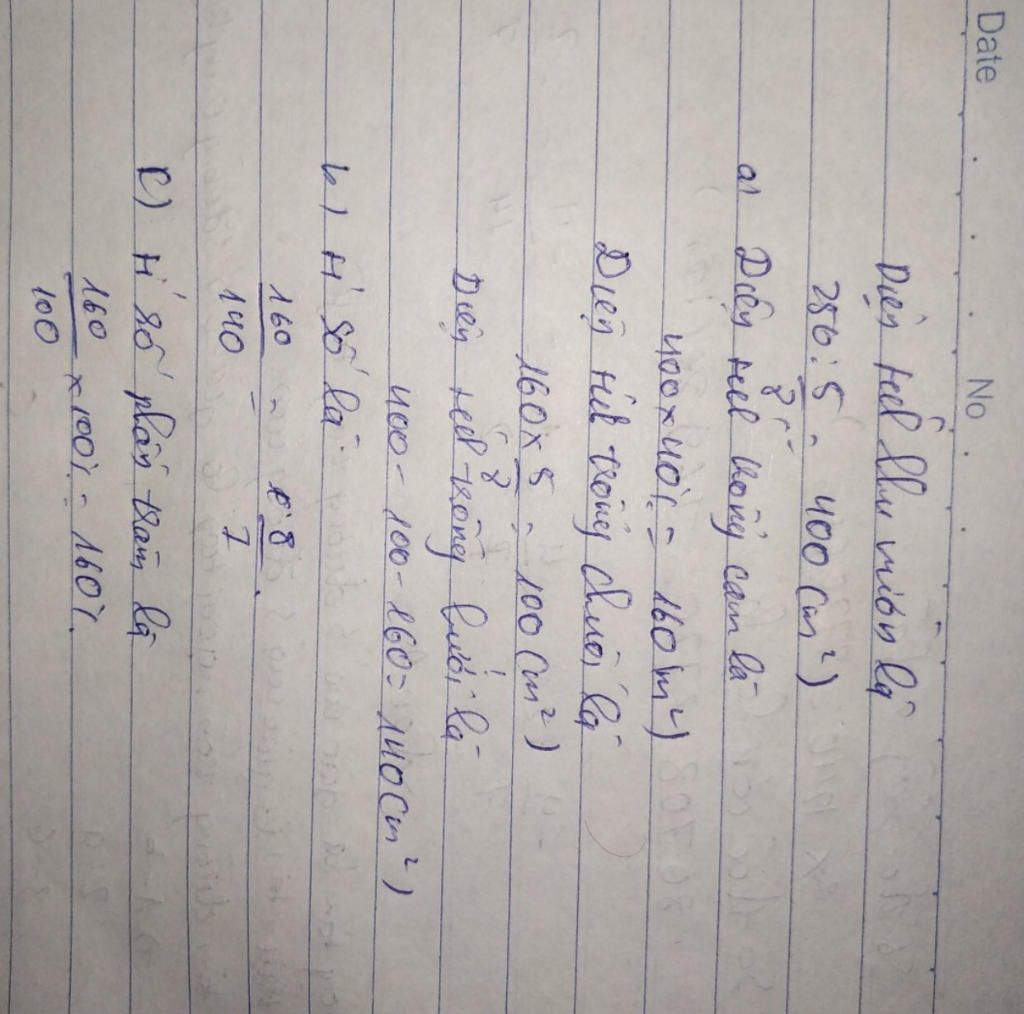 Date No
Diện tích khu vườn là
250 : 5/8 = 400 (m²)
a) Diện tích trồng cam là
400 x 40% = 160 (m²)
Diện tích trồng chuối là
160 x 5/8 = 100 (m²)
Diện tích trồng bưởi là
400 - 100 - 160 = 140 (m²)
b) Tỉ số là
160/140 = 8/7
c) Tỉ số phần trăm là
160/100 x 100% = 160%